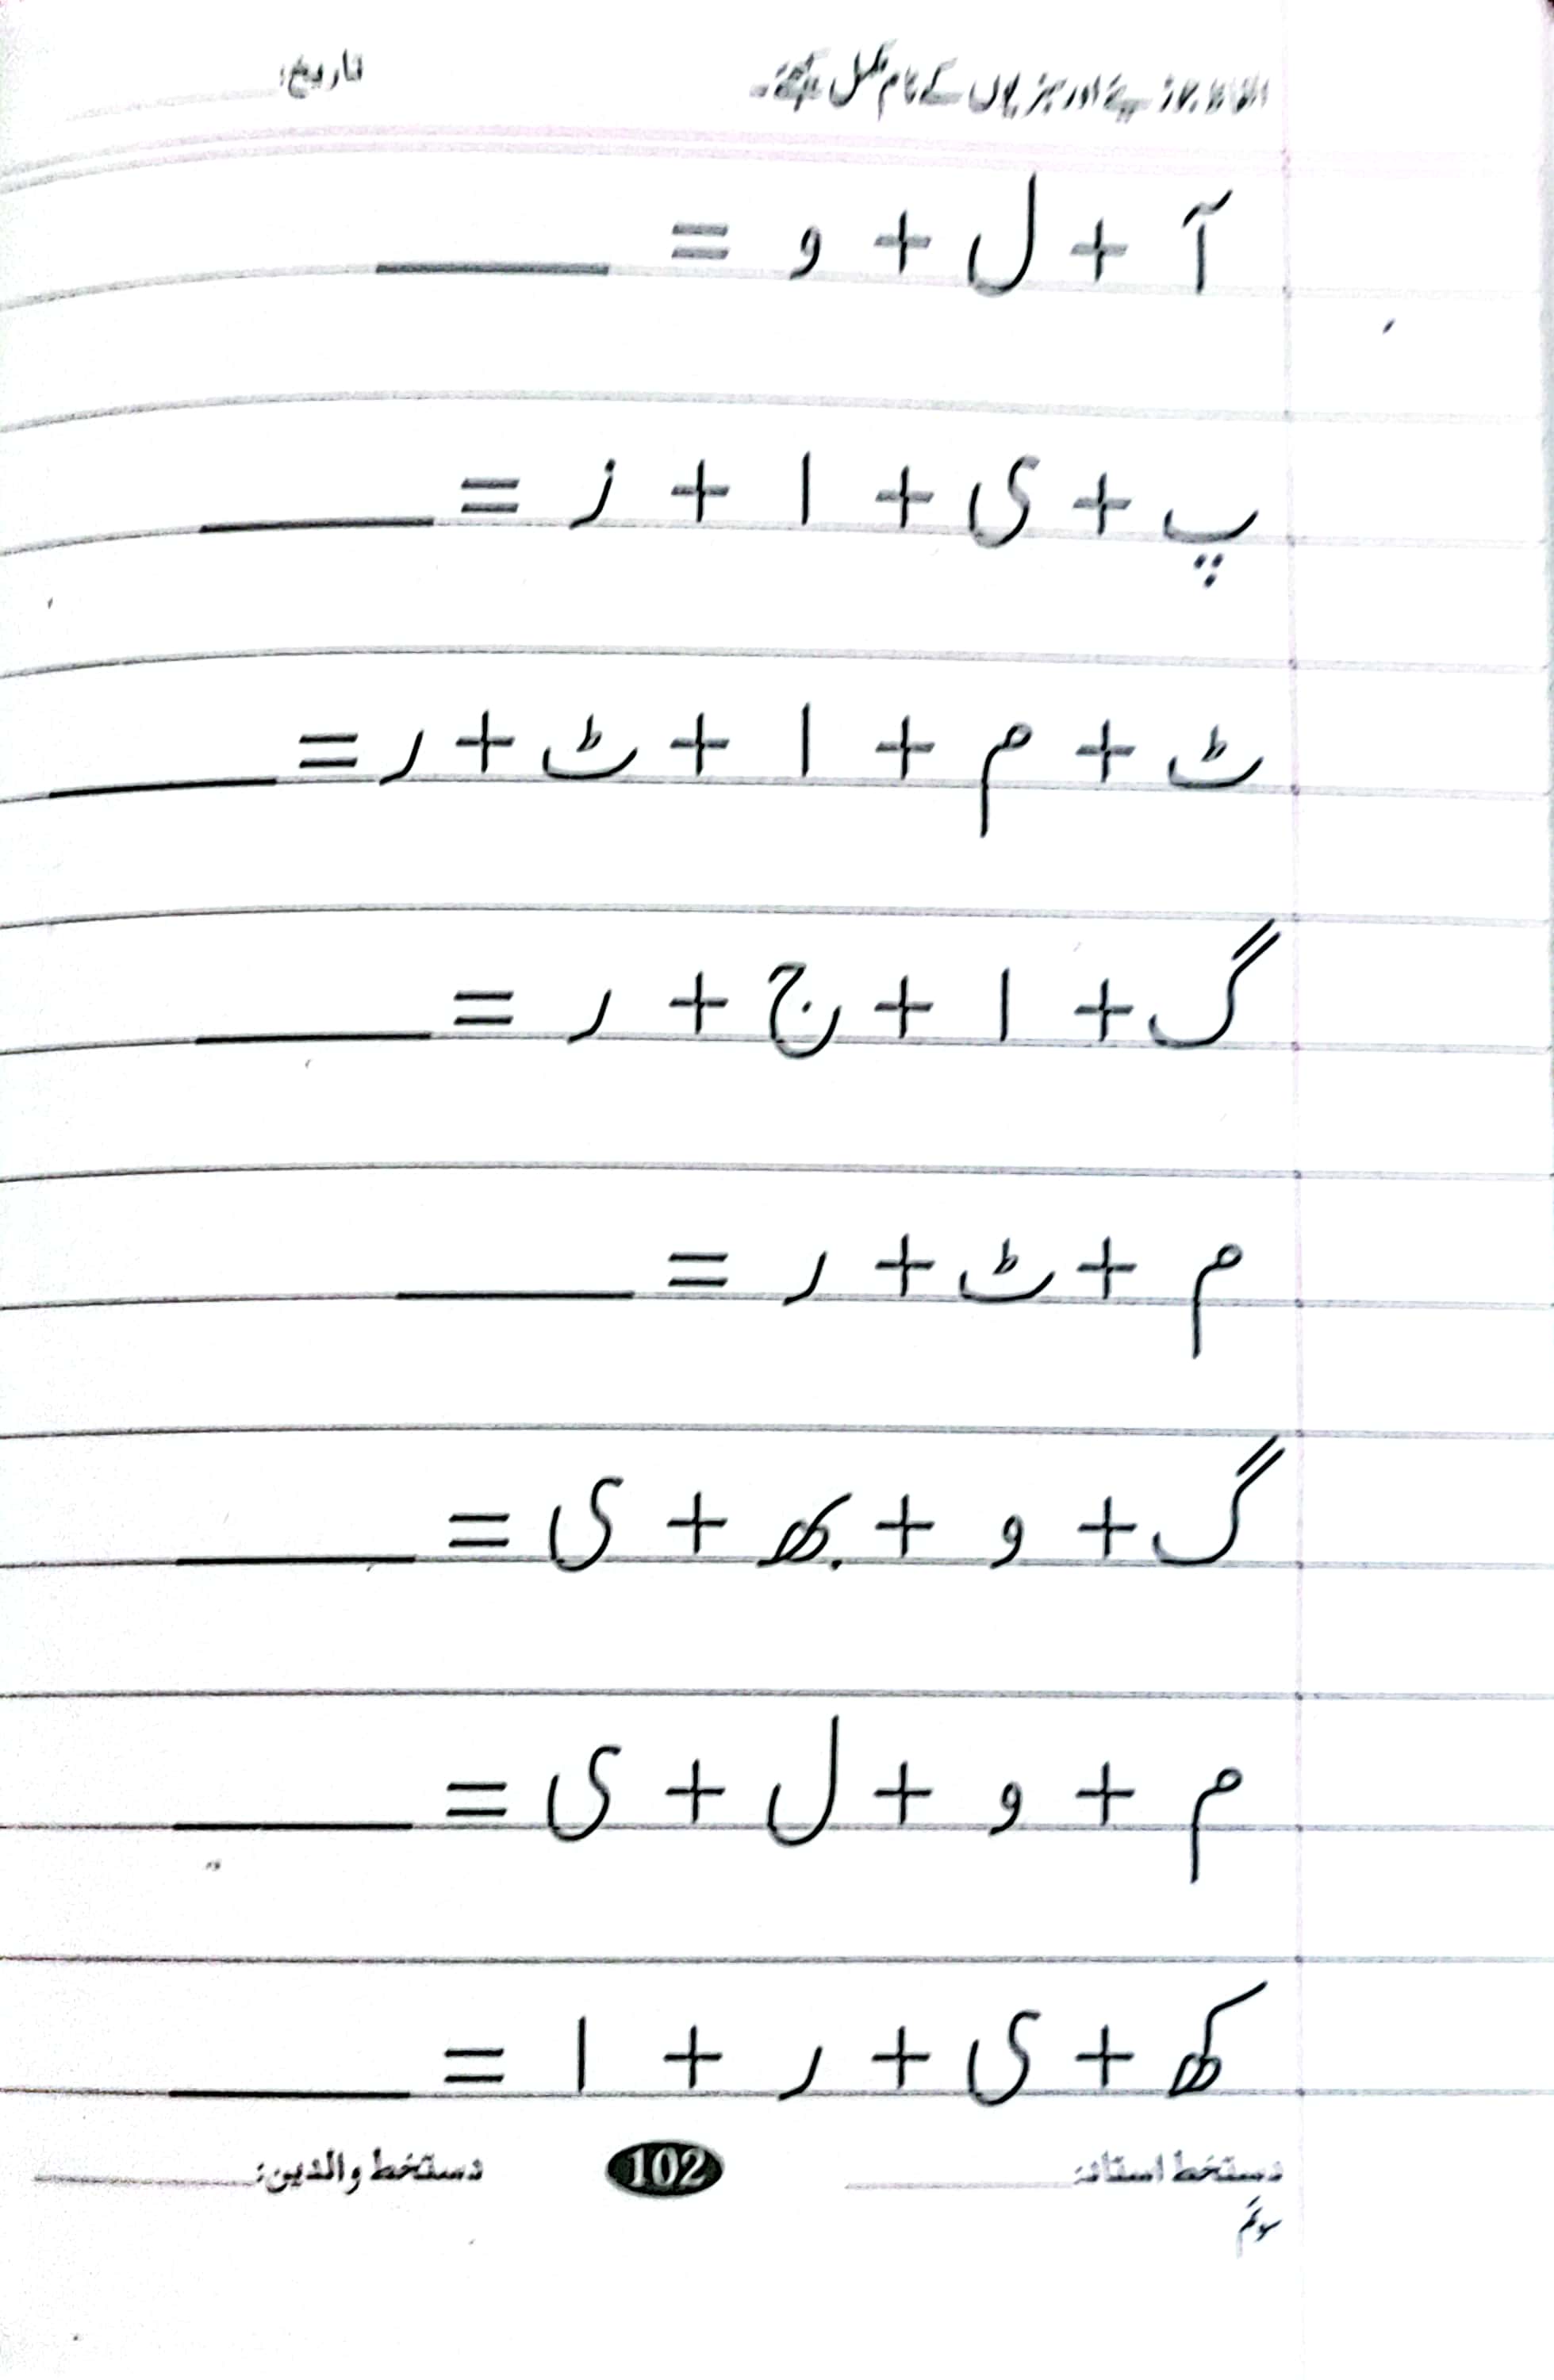 الفاظ جوڑیئے اور سبزیوں کے نام مکمل کیجئے۔ تاریخ: ________
آ + ل + و = ________
پ + ی + ا + ز = ________
ٹ + م + ا + ٹ + ر = ________
گ + ا + ج + ر = ________
م + ٹ + ر = ________
گ + و + بھ + ی = ________
م + و + ل + ی = ________
کھ + ی + ر + ا = ________
دستخط استاد: ________ 102 دستخط والدین: ________
سوئم